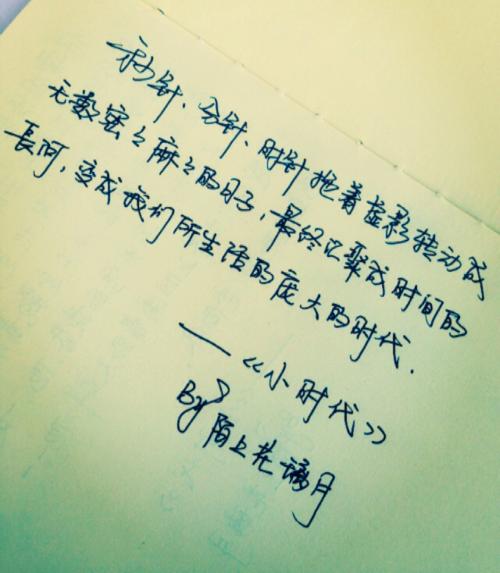 秒针、分针、时针拖着虚影转动成
无数密密麻麻的日子,最终汇聚成时间的
長河,变成我们所生活的庞大的时代.
——《小时代》
By 陌上花谪月